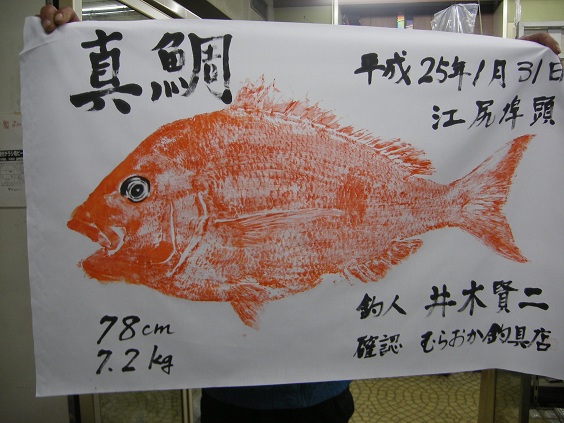 真鯛
平成25年1月31日
江尻埠頭
釣人 井木賢二
確認 むらおか釣具店
78cm
7.2kg